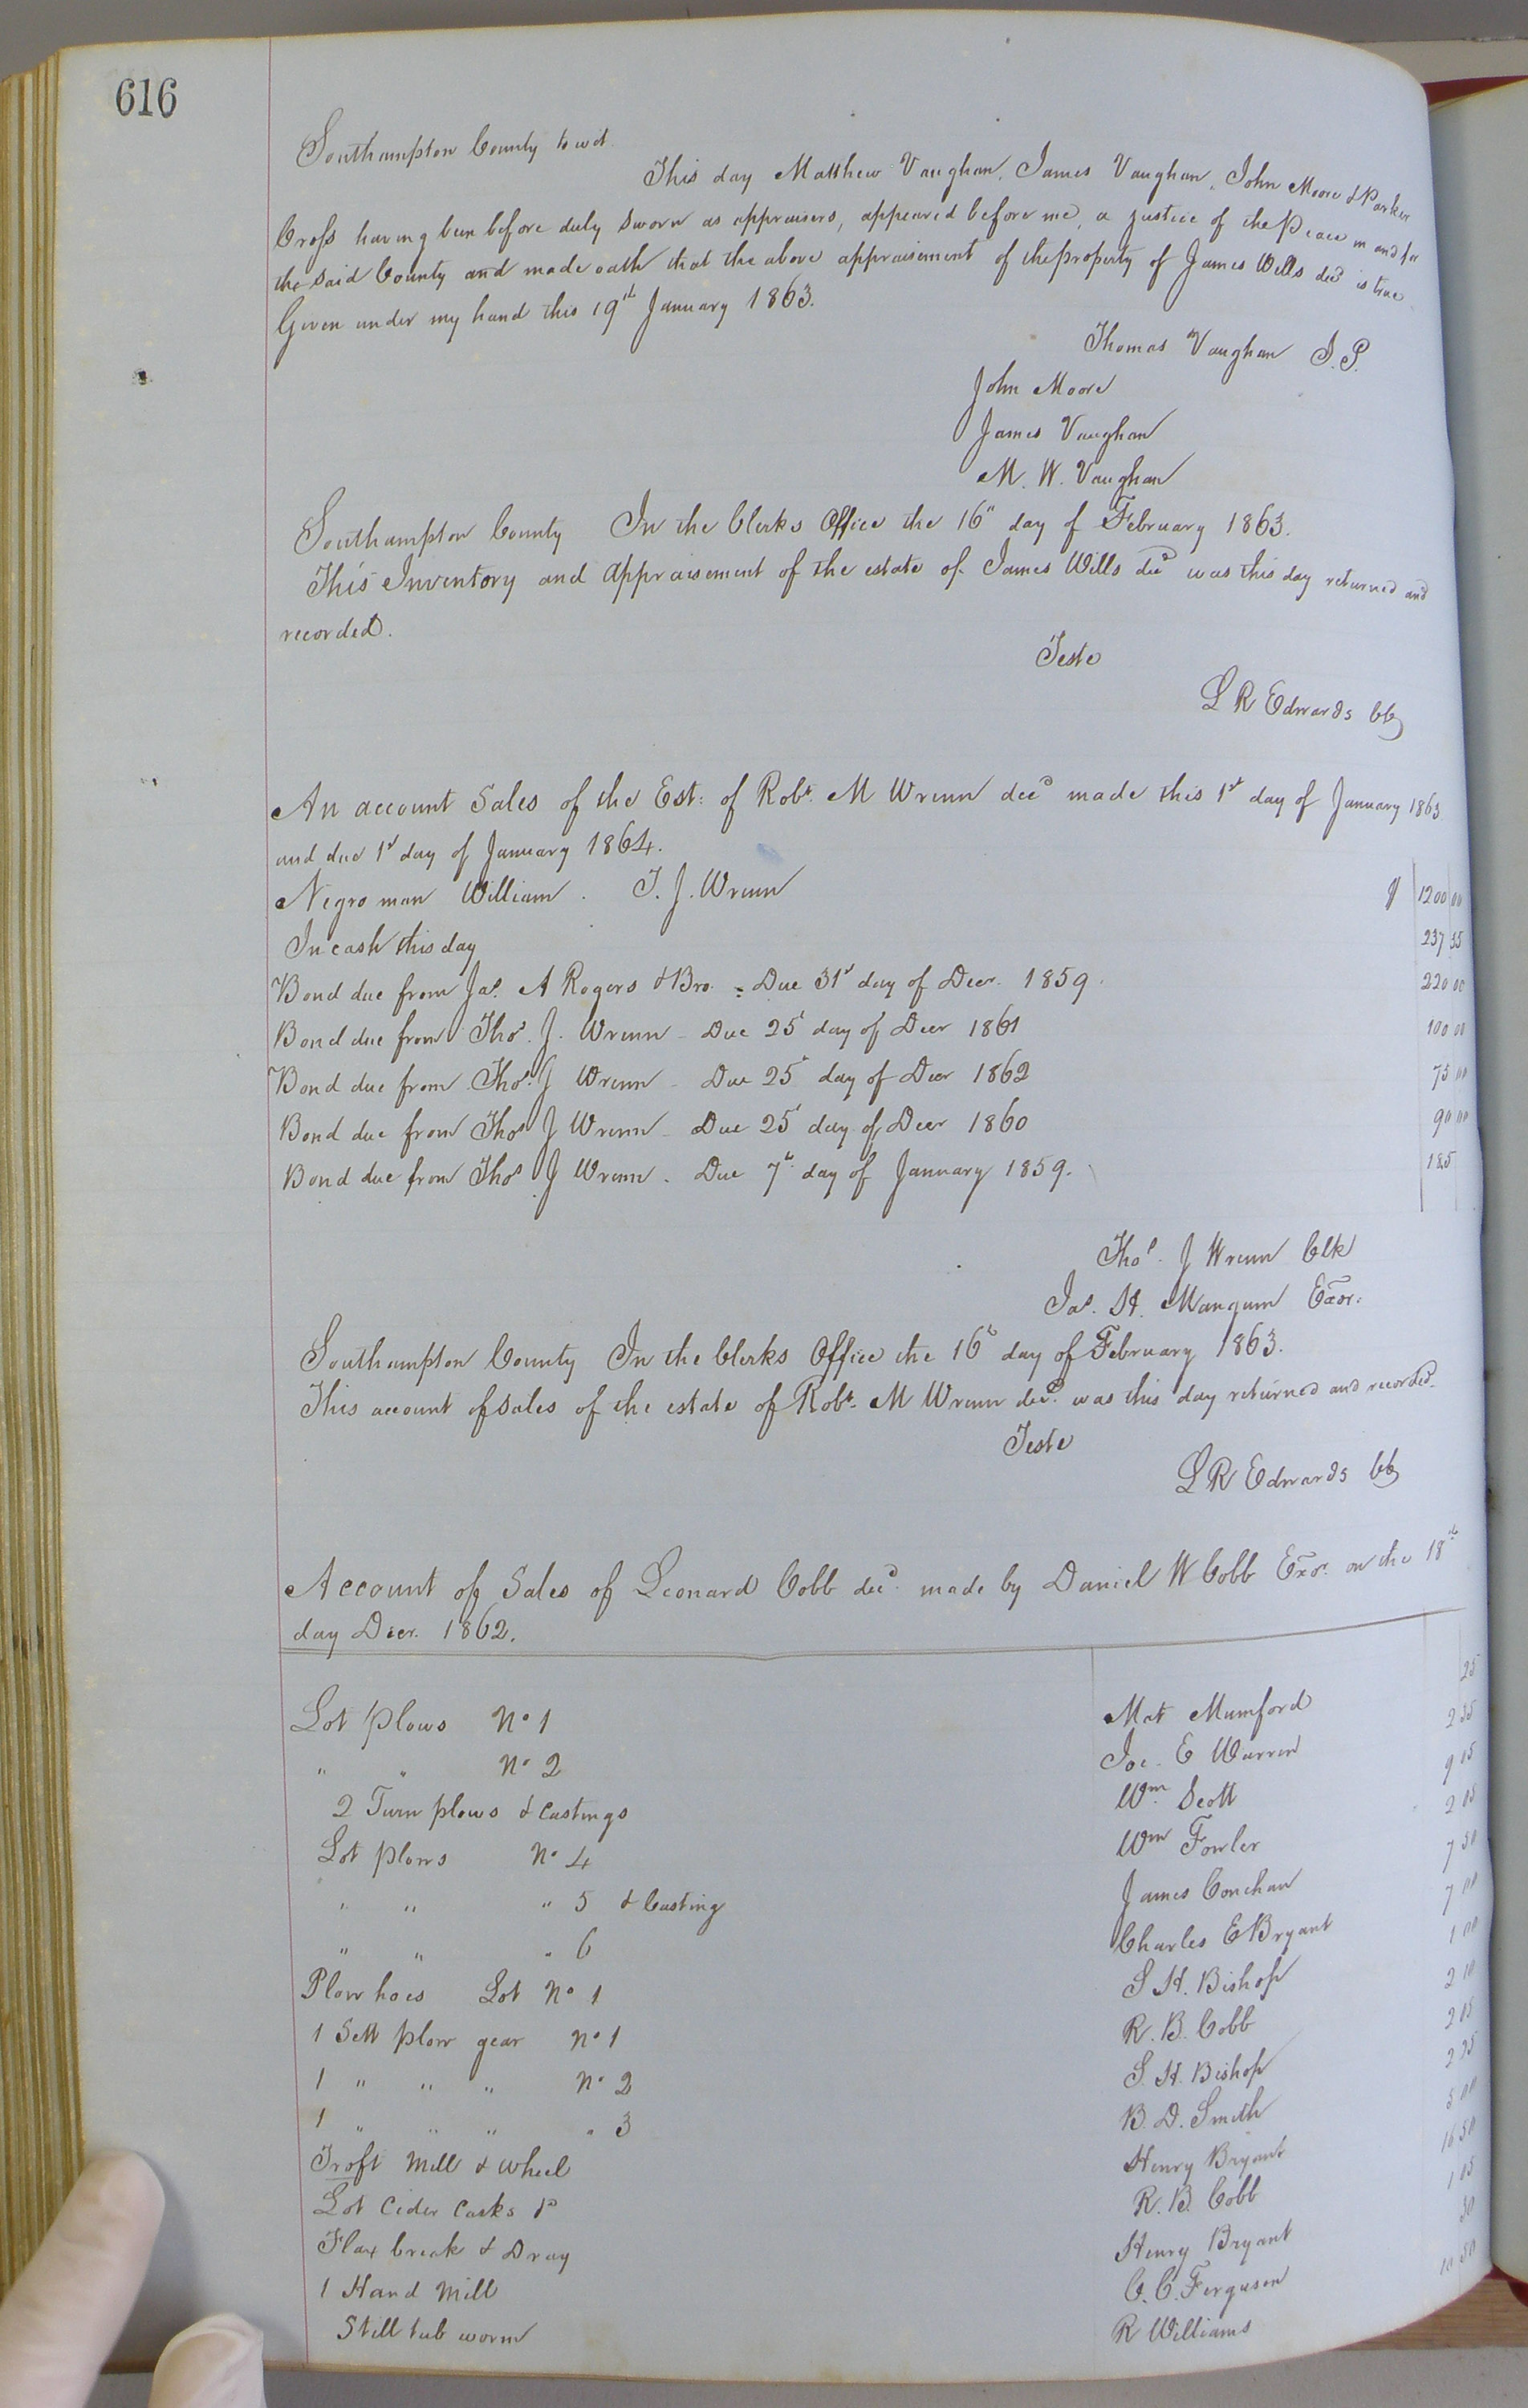 616
Southampton County to wit
This day Matthew Vaughan, James Vaughan, John Moore & Parker
Cross having been before duly sworn as appraisers, appeared before me, a Justice of the Peace in and for
the said County and made oath that the above appraisement of the property of James Wills decd is true
Given under my hand this 19th January 1863.
Thomas Vaughan J.P.
John Moore
James Vaughan
M. W. Vaughan
Southampton County In the Clerks Office the 16" day of February 1863.
This Inventory and appraisement of the estate of James Wills decd was this day returned and
recorded.
Teste
L R Edwards CC
An account Sales of the Est: of Robt. M Wrenn decd made this 1st day of January 1863
and due 1st day of January 1864.
Negro man William . T. J. Wrenn $ 1200 00
In cash this day 237 55
Bond due from Jas. A Rogers & Bro. - Due 31st day of Decr. 1859. 220 00
Bond due from Thos. J. Wrenn - Due 25t day of Decr 1861 100 00
Bond due from Thos. J Wrenn - Due 25t day of Decr 1862 75 00
Bond due from Thos J Wrenn - Due 25t day of Decr 1860 90 00
Bond due from Thos J Wrenn . Due 7t day of January 1859. 185
Thos. J Wrenn Clk
Jas. H. Mangum Exor:
Southampton County In the Clerks Office the 16t day of February 1863.
This account of sales of the estate of Robt. M Wrenn decd. was this day returned and recorded.
Teste
L R Edwards CC
Account of Sales of Leonard Cobb decd. made by Daniel W Cobb Exor. on the 18th
day Decr. 1862.
Lot plows No 1 Mat Mumford 25
" " No 2 Joe. E Warren 2 35
2 Turn plows & Castings Wm. Scott 9 05
Lot plows No 4 Wm Fowler 2 05
" " " 5 & Casting James Conchan 7 50
" " " 6 Charles E Bryant 7 00
Plow hoes Lot No 1 S. H. Bishop 1 00
1 Sett plow gear No 1 R. B. Cobb 2 10
1 " " " No 2 S. H. Bishop 2 05
1 " " " " 3 B. D. Smith 2 25
Troft Mill & Wheel Henry Bryant 5 00
Lot Cider Casks R. B. Cobb 16 50
Flax break & Dray Henry Bryant 1 05
1 Hand Mill C. C. Ferguson 50
Still tub worm R Williams 10 50